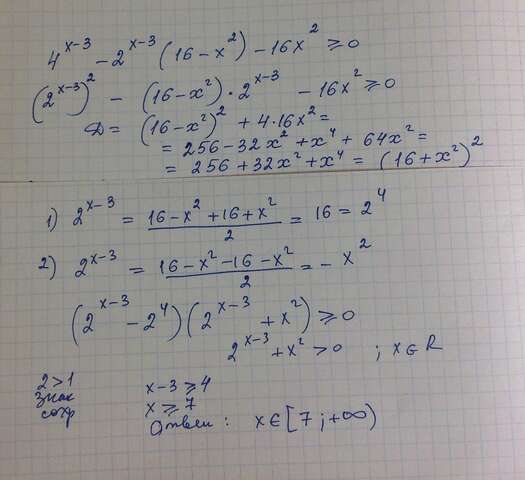 4^(x-3) - 2^(x-3) (16 - x²) - 16x² ≥ 0
(2^(x-3))² - (16 - x²) · 2^(x-3) - 16x² ≥ 0
D = (16 - x²)² + 4 · 16x² =
= 256 - 32x² + x⁴ + 64x² =
= 256 + 32x² + x⁴ = (16 + x²)²
1) 2^(x-3) = (16 - x² + 16 + x²)/2 = 16 = 2⁴
2) 2^(x-3) = (16 - x² - 16 - x²)/2 = - x²
(2^(x-3) - 2⁴)(2^(x-3) + x²) ≥ 0
2^(x-3) + x² > 0 ; x ∈ R
2 > 1
знак
сохр
x - 3 ≥ 4
x ≥ 7
Ответ: x ∈ [7; +∞)